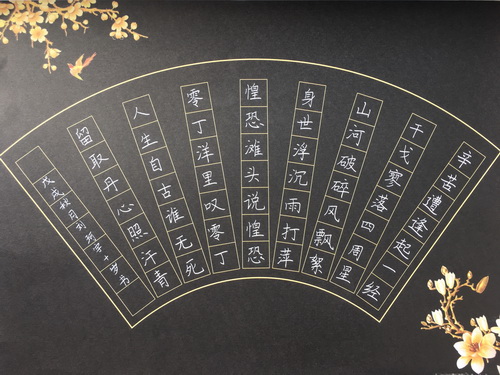 辛苦遭逢起一经
干戈寥落四周星
山河破碎风飘絮
身世浮沉雨打萍
惶恐滩头说惶恐
零丁洋里叹零丁
人生自古谁无死
留取丹心照汗青
戊戌秋月刘十岁书